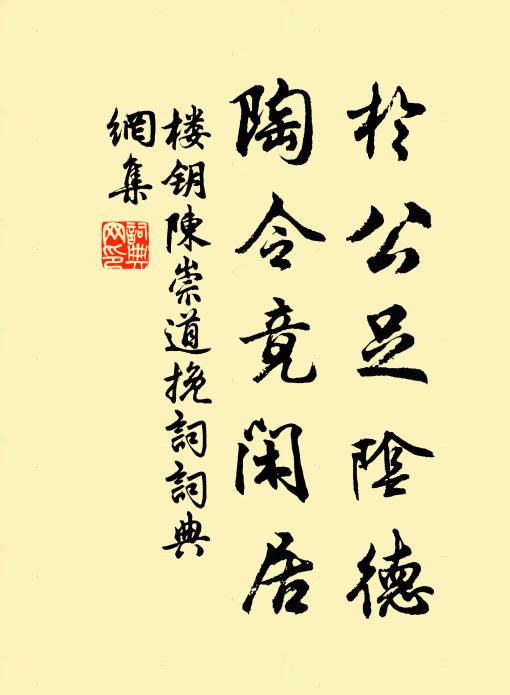 於公足陰德
陶令竟閑居
楼钥陳崇道挽詞詞典
網集
詞典网印